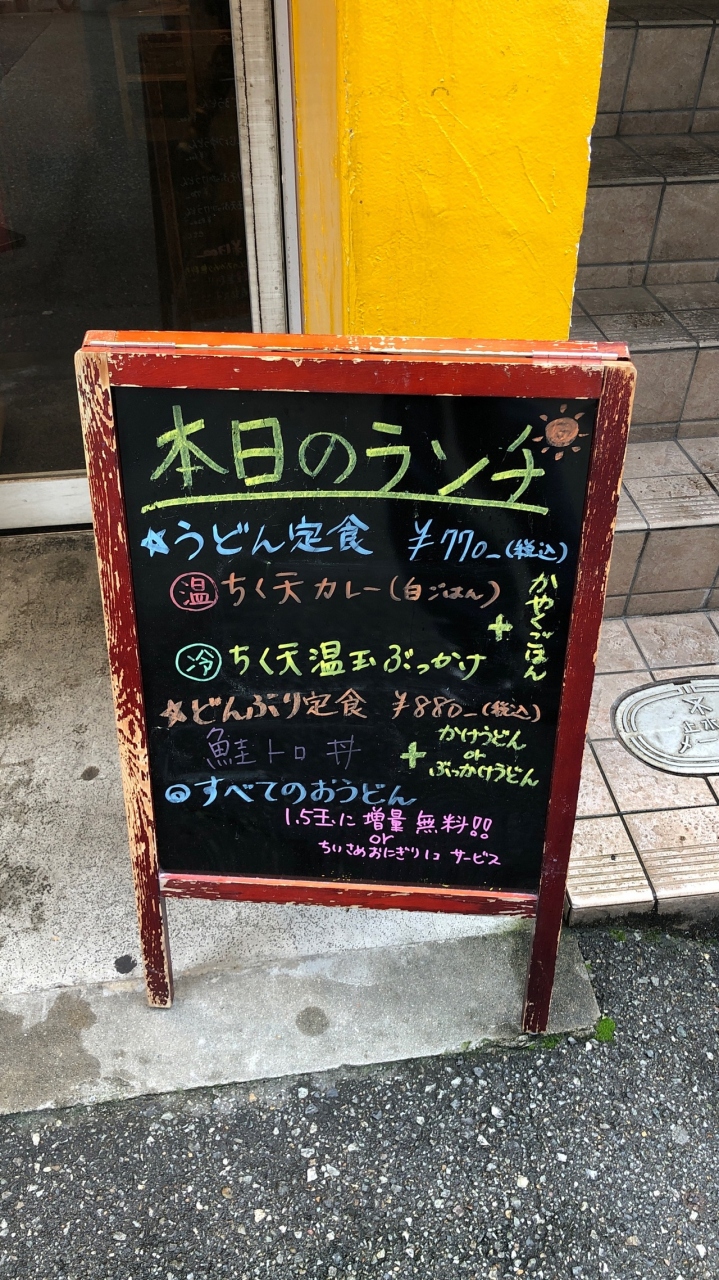 本日のランチ
★うどん定食 ¥770-(税込)
温 ちく天カレー(白ごはん)
+ かやくごはん
冷 ちく天温玉ぶっかけ
★どんぶり定食 ¥880-(税込)
鮭トロ丼
+ かけうどん
or
ぶっかけうどん
◎すべてのおうどん
1.5玉に増量無料!!
or
ちいさめおにぎり1コ サービス